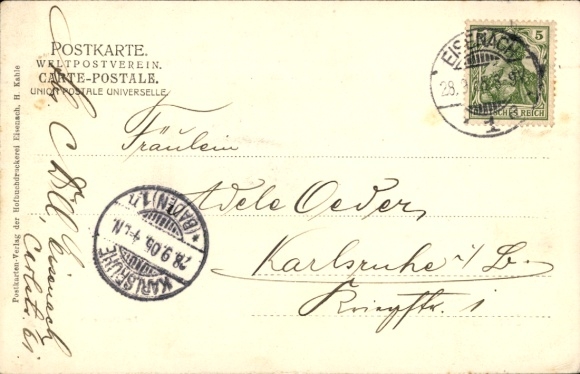 POSTKARTE.
WELTPOSTVEREIN.
CARTE-POSTALE.
UNION POSTALE UNIVERSELLE
Fräulein
Adele Oeder,
Karlsruhe i/B.
Kriegstr. 1
EISENACH
28.9
1
5
DEUTSCHES REICH
KARLSRUHE
28.9.05. 4-5N.
*(BADEN) 1.*
Abs. C Dill,
Eisenach
Postkarten-Verlag der Hofbuchdruckerei Eisenach, H. Kahle